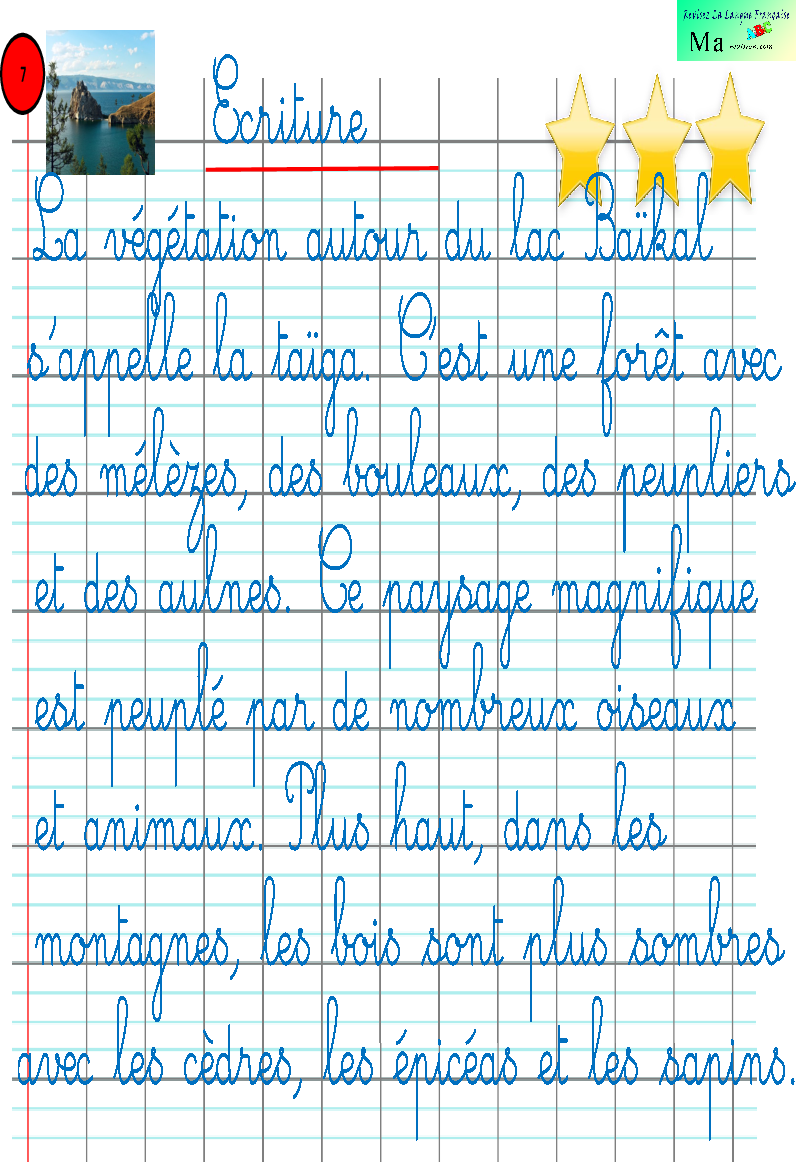 Revisez La Langue Française
Ma revision.com
7
Ecriture
La végétation autour du lac Baïkal
s'appelle la taïga. C'est une forêt avec
des mélèzes, des bouleaux, des peupliers
et des aulnes. Ce paysage magnifique
est peuplé par de nombreux oiseaux
et animaux. Plus haut, dans les
montagnes, les bois sont plus sombres
avec les cèdres, les épicéas et les sapins.